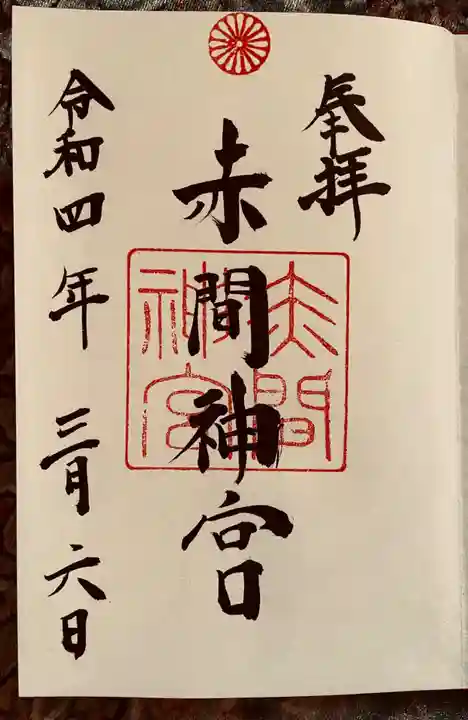 奉拝
赤間神宮
赤間
神宮
令和四年 三月 六日